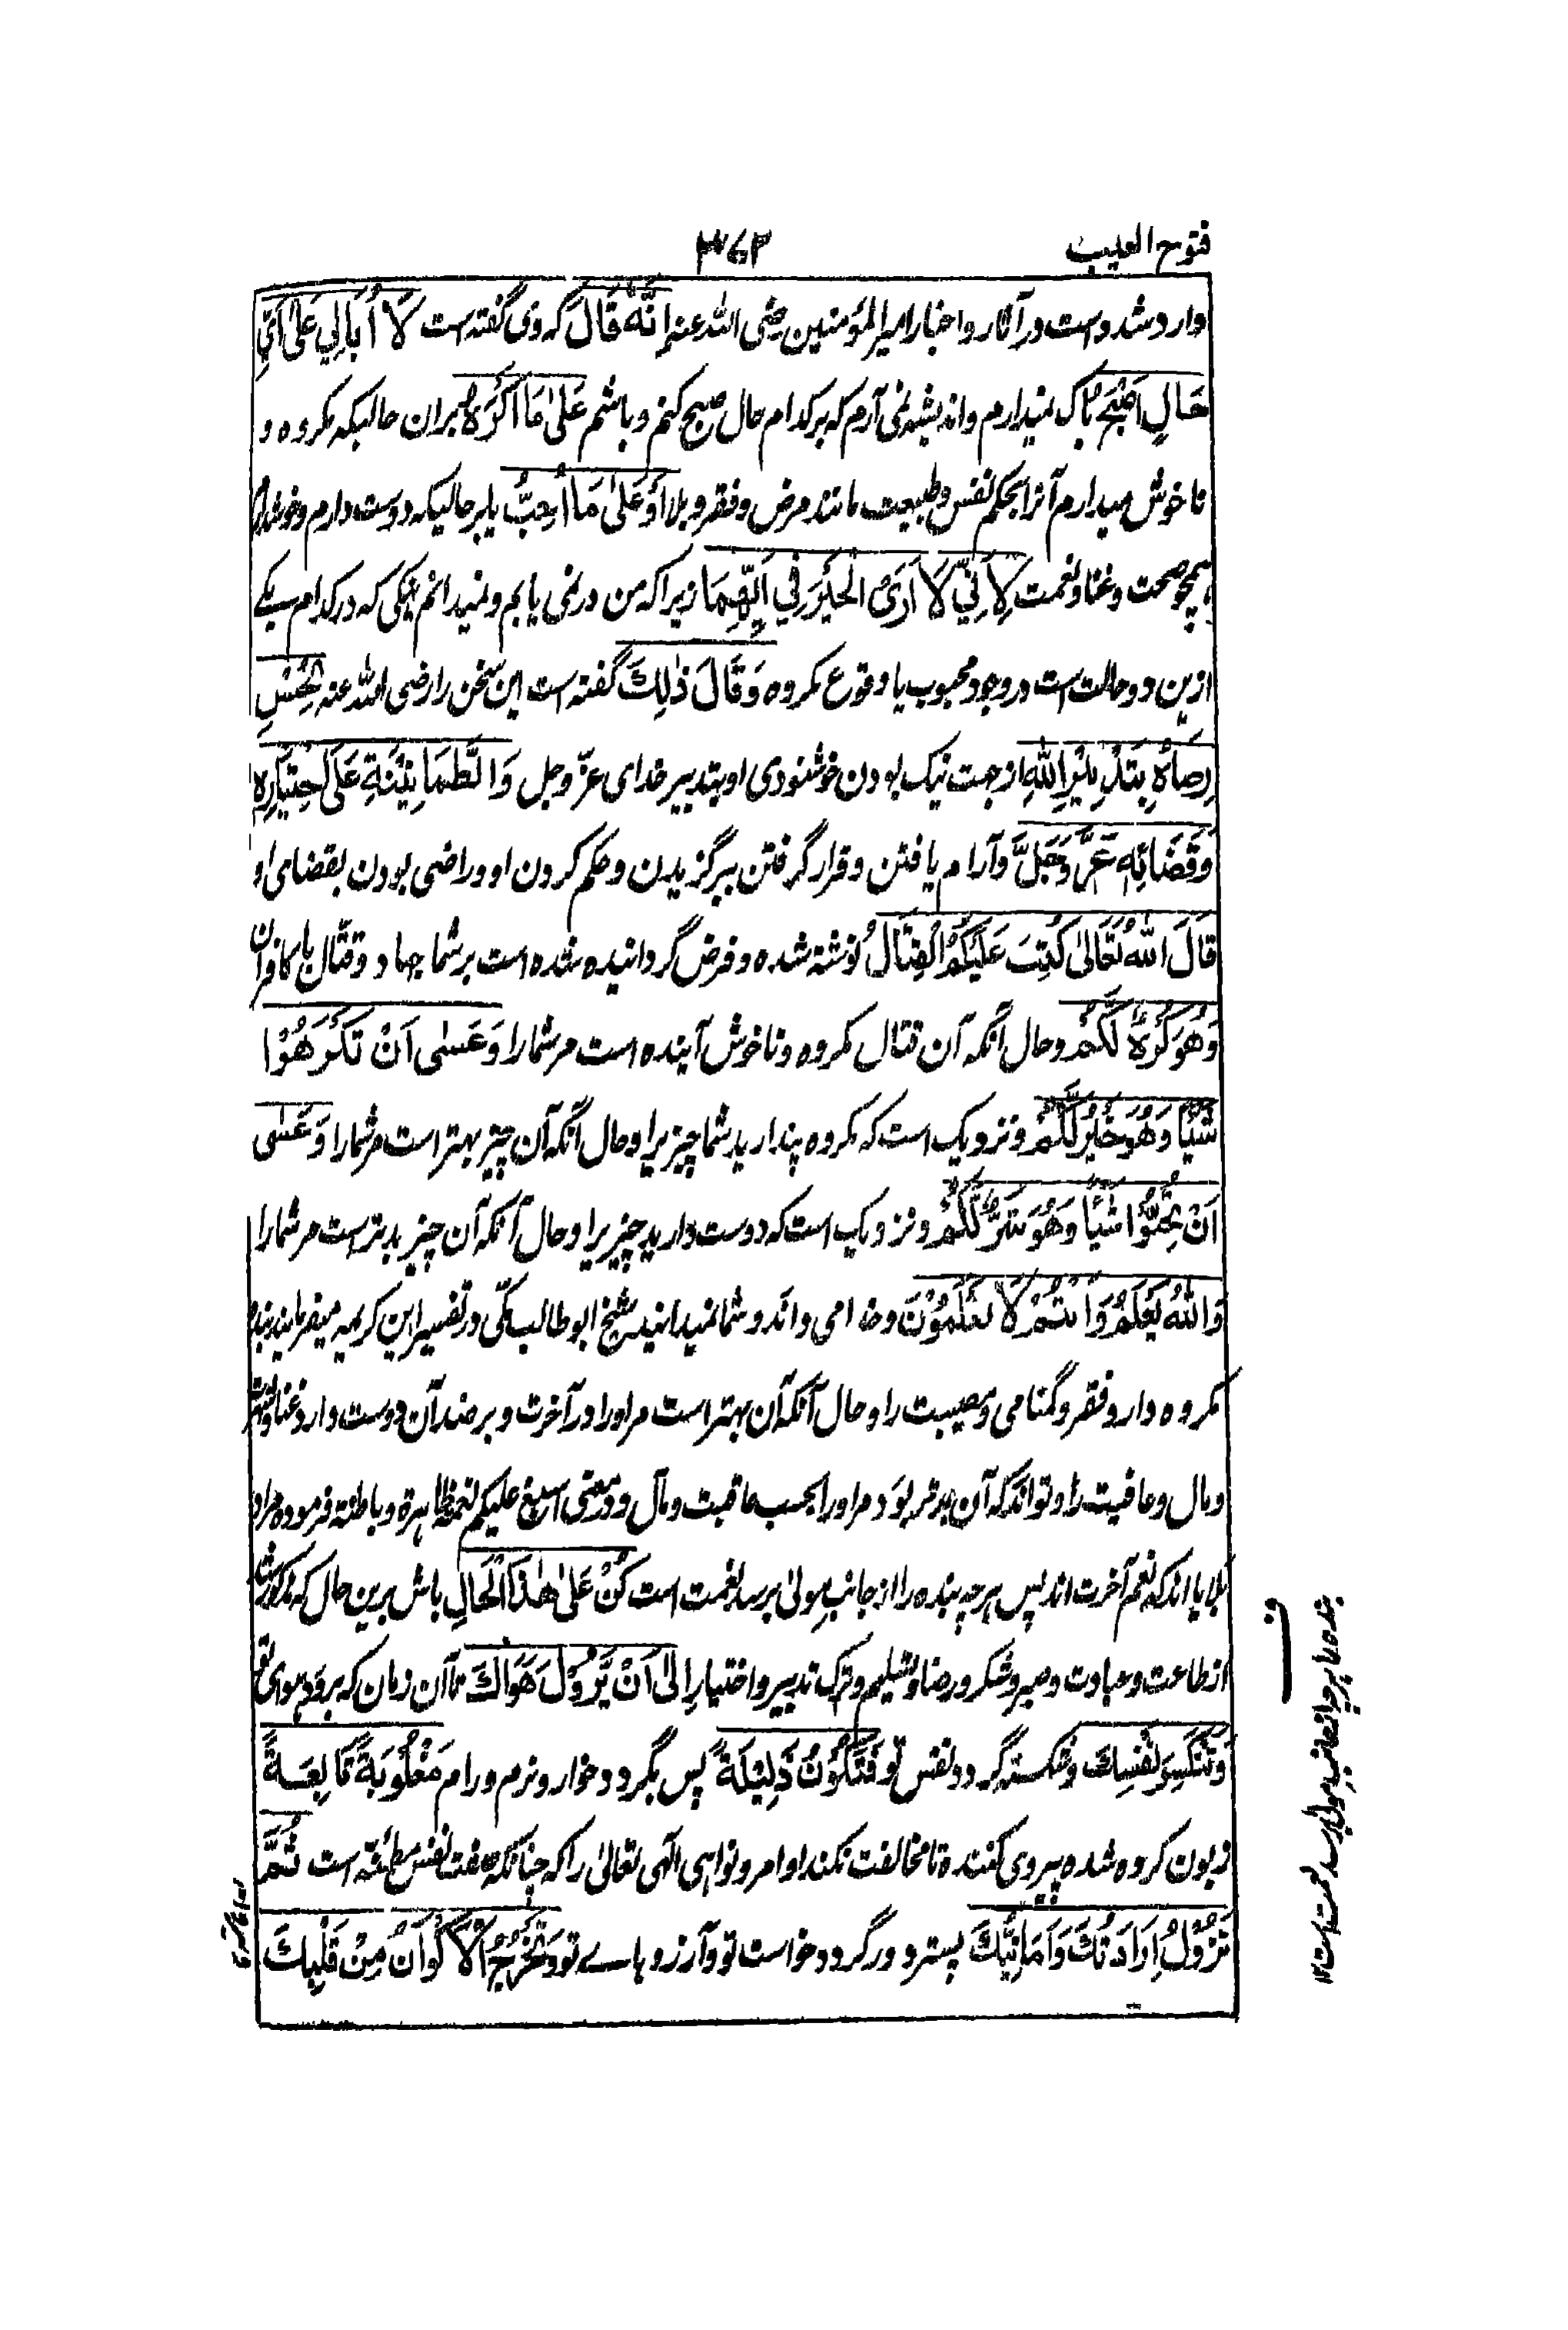 فتوح الغيب
۳۶۲
وارد شده است در آثار و اخبار امیر المؤمنین رضی الله عنه اِنَّهٗ قَالَ که وی گفته است لَا أُبَالِي عَلٰى أَيِّ
حَالٍ اُصْبِحُ باک نمیدارم و اندیشه نمی آرم که بر کدام حال صبح کنم و باشم عَلٰى مَا اَكْرَهُ بران حالیکه مکروه و
ناخوش میدارم آنرا بحکم نفس و طبیعت مانند مرض و فقر و بلا اَوْ عَلٰى مَا اُحِبُّ یا بر حالیکه دوست دارم و خوش دارم
همچو صحت و غنا و نعمت لِاَنِّيْ لَا اَرَى الْخَيْرَ فِيْ اَيِّهِمَا زیرا که من در نمی یابم و نمیدانم نیکی که در کدام یکے
ازین دو حالت است در وجود محبوب یا وقوع مکروه وَقَالَ ذٰلِكَ گفته است این سخن را رضی الله عنه لِحُسْنِ
رِضَاهُ بِتَدْبِيْرِ اللهِ از جهت نیک بودن خوشنودی او بتدبیر خدای عزّ وجل وَالطَّمَانِيْنَةِ عَلٰى اخْتِيَارِهٖ
وَقَضَائِهٖ عَزَّ وَجَلَّ و آرام یافتن و قرار گرفتن ببرگزیدن و حکم کردن او و راضی بودن بقضای او
قَالَ اللهُ تَعَالٰى كُتِبَ عَلَيْكُمُ الْقِتَالُ نوشته شده و فرض گردانیده شده است بر شما جهاد و قتال با کافران
وَهُوَ كُرْهٌ لَّكُمْ و حال آنکه آن قتال مکروه و ناخوش آینده است مر شما را وَعَسٰى اَنْ تَكْرَهُوْا
شَيْئًا وَهُوَ خَيْرٌ لَّكُمْ و نزدیک است که مکروه پندارید شما چیز یرا و حال آنکه آن چیز بهتر است مر شما را وَعَسٰى
اَنْ تُحِبُّوْا شَيْئًا وَهُوَ شَرٌّ لَّكُمْ و نزدیک است که دوست دارید چیز یرا و حال آنکه آن چیز بدتر است مر شما را
وَاللهُ يَعْلَمُ وَاَنْتُمْ لَا تَعْلَمُوْنَ و خدا می داند و شما نمیدانید شیخ ابو طالب مکّی در تفسیر این کریمه میفرمایند بنده
مکروه دارد فقر و گمنامی و مصیبت را و حال آنکه آن بهتر است مر او را در آخرت و بر ضد آن دوست دارد غنا و شهرت
و مال و عافیت را و تواند که آن بدتر بود مر او را بحسب عاقبت و مآل و در معنی اسبغ علیکم نعمه ظاهرة و باطنة فرموده مراد
بلایا اند که نعم آخرت اند پس هر چه بنده را از جانب مولیٰ برسد نعمت است كُنْ عَلٰى هٰذَا الْحَالِ باش برین حال که مذکور شد
از طاعت و عبادت و صبر و شکر و رضا و تسلیم و ترک تدبیر و اختیار اِلٰى اَنْ يَّزُوْلَ هَوَاكَ تا آن زمان که برود هوای تو
وَتَنْكَسِرَ نَفْسُكَ و شکسته گردد نفس تو فَتَكُوْنَ ذَلِيْلَةً پس بگردد خوار و نرم و رام مَغْلُوْبَةً تَابِعَةً
زبون کرده شده پیروی کننده تا مخالفت نکند اوامر و نواهی الٓهی تعالیٰ را که چنانکه صفت نفس مطمئنّه است ثُمَّ
تَزُوْلُ اِرَادَتُكَ وَاَمَانِيُّكَ پستر دور گردد خواست تو و آرزو هاے تو وَتَخْرُجُ الْاَكْوَانُ مِنْ قَلْبِكَ
ف
بنده را هر چه از جانب مولیٰ برسد نعمت است ۱۲